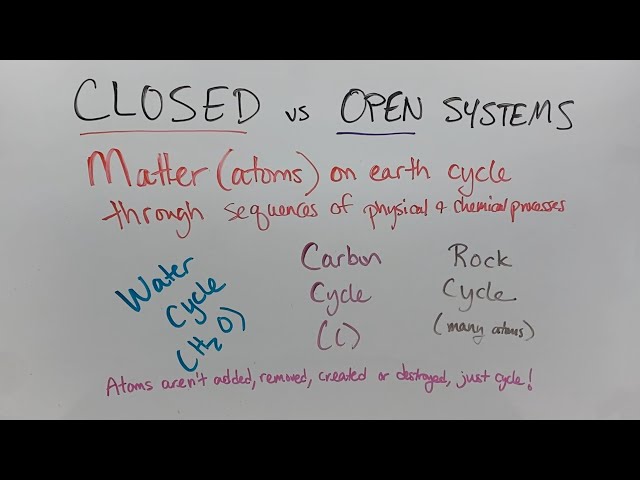 CLOSED vs OPEN SYSTEMS
Matter (atoms) on earth cycle
through sequences of physical & chemical processes
Water
Cycle
(H2O)
Carbon
Cycle
(C)
Rock
Cycle
(many atoms)
Atoms aren't added, removed, created or destroyed, just cycle!